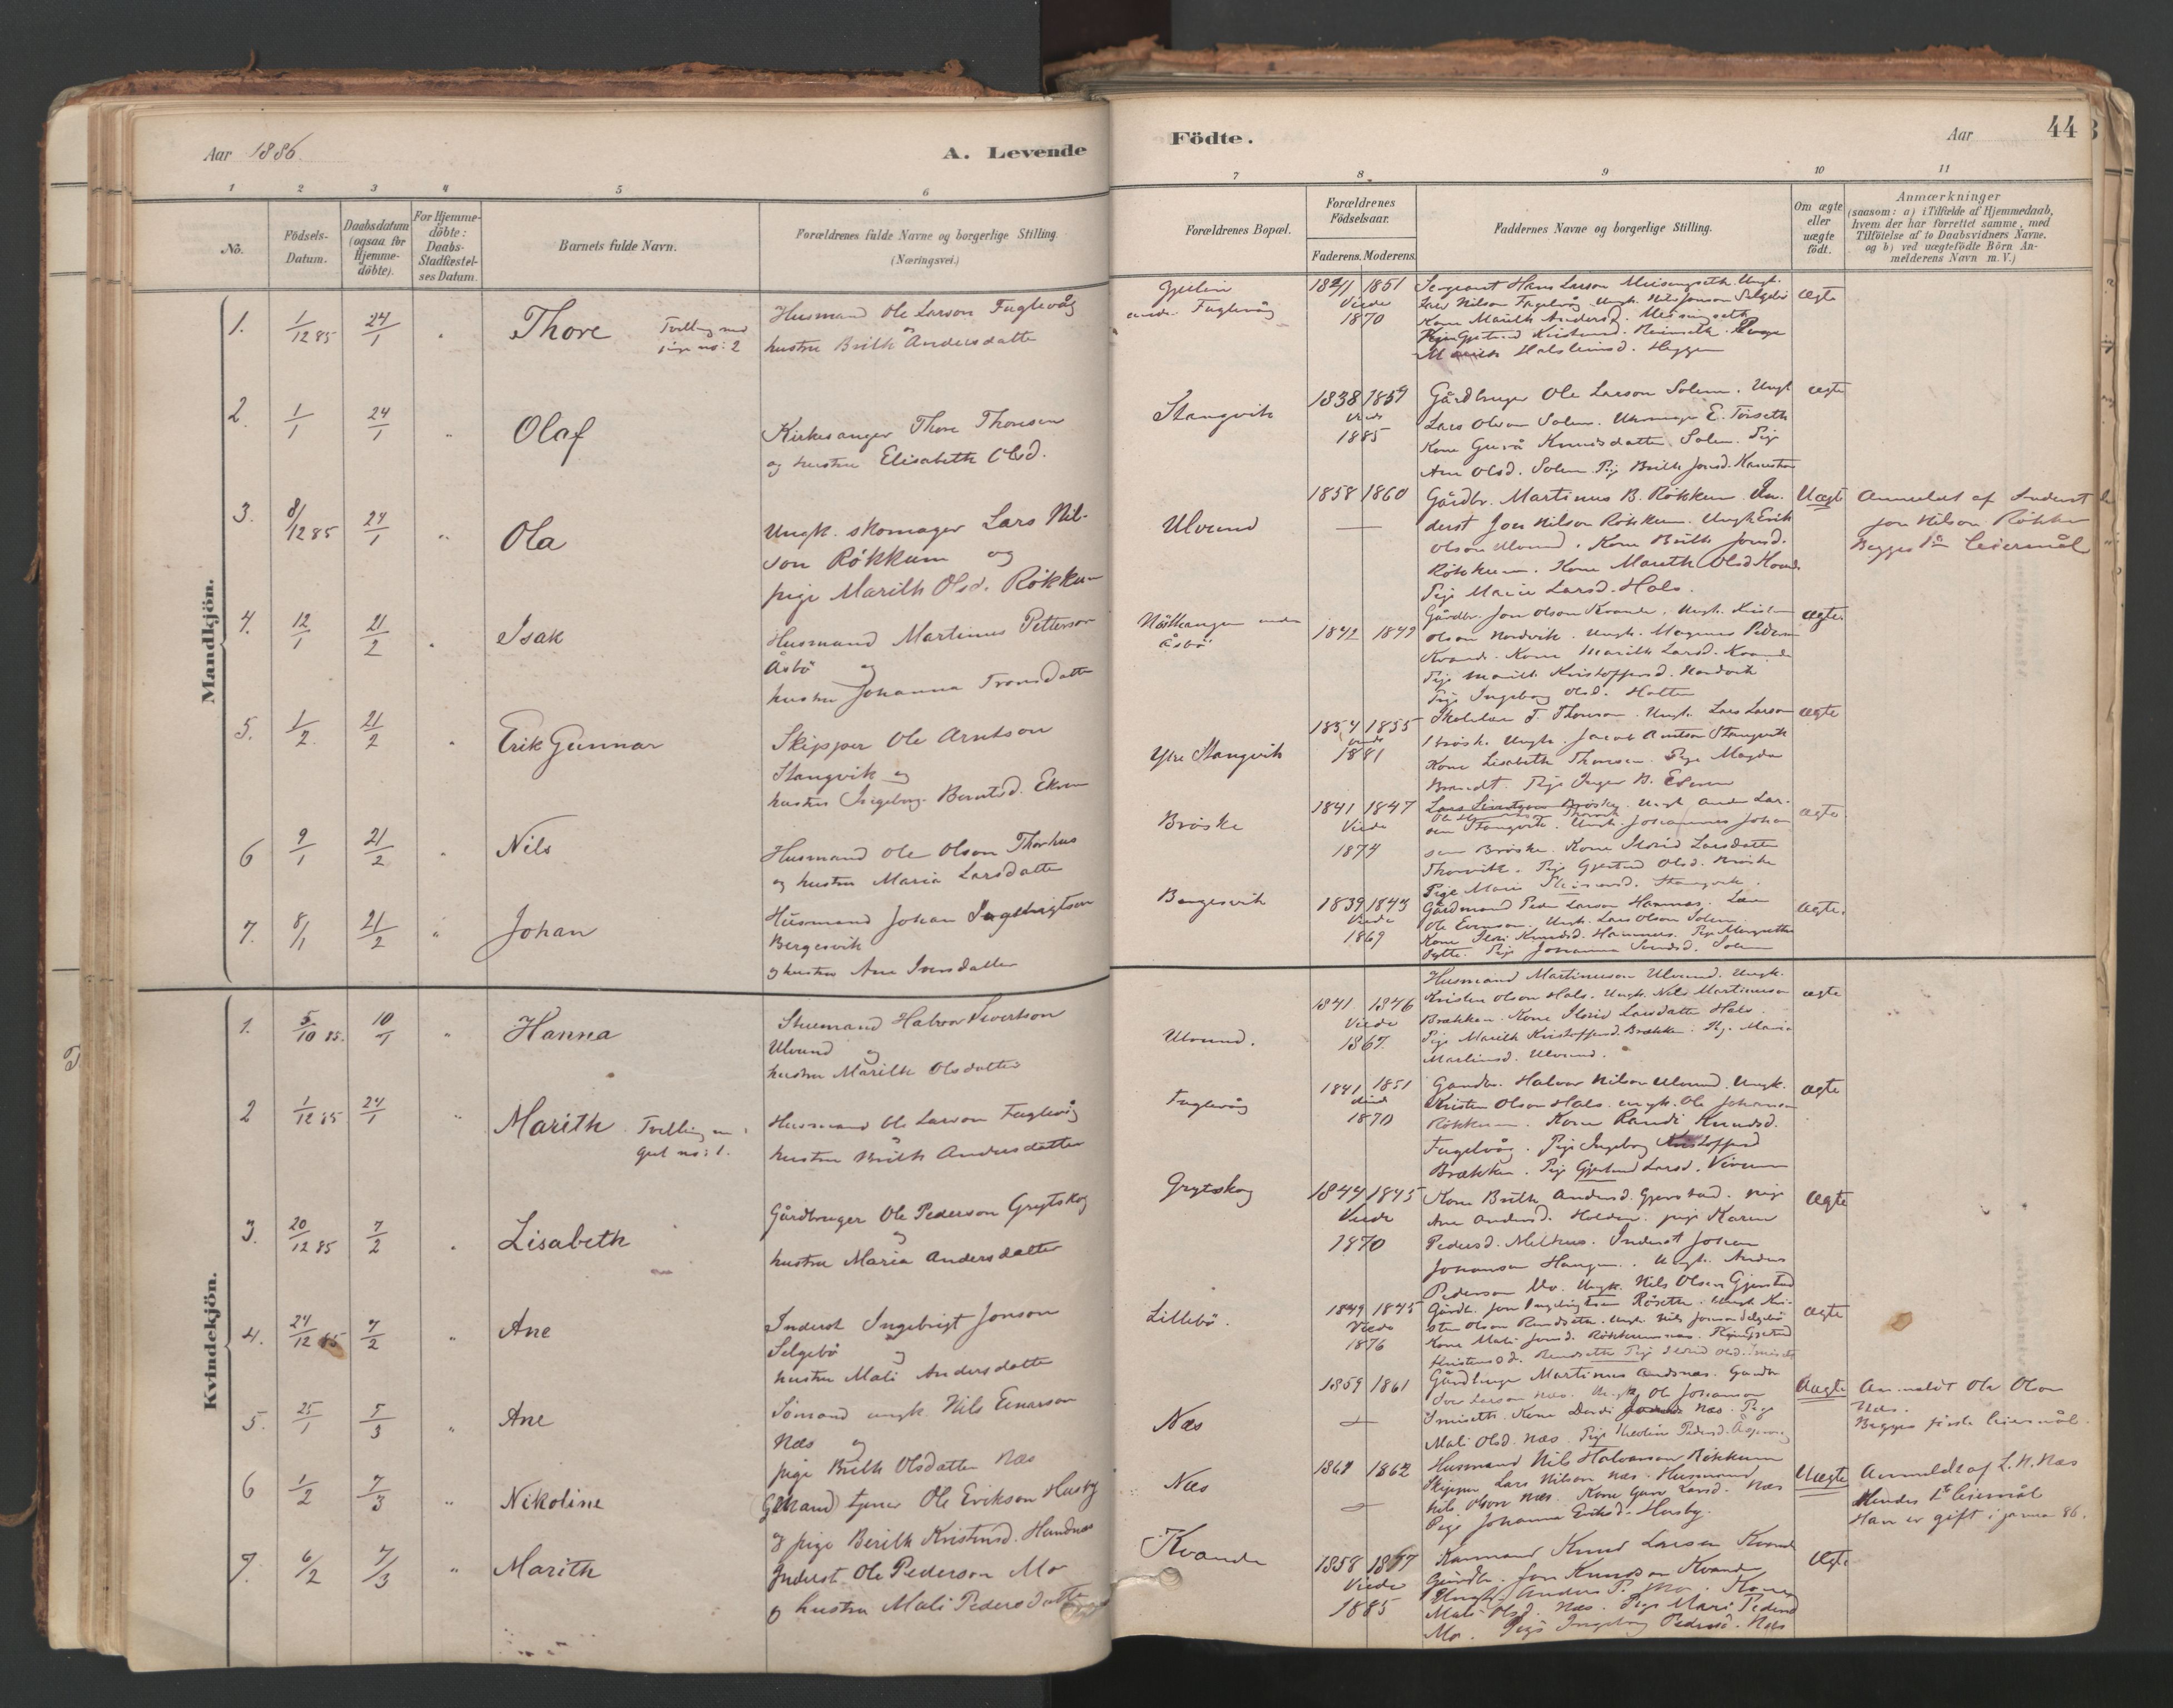 Aar 1886.
A. Levende
Födte.
Aar
44
1 2 3 4 5 6 7 8 9 10 11
No.
Födsels-Datum.
Daabsdatum (ogsaa for Hjemme-döbte).
For Hjemme-döbte: Daabs-Stadfæstel-ses Datum.
Barnets fulde Navn.
Forældrenes fulde Navne og borgerlige Stilling.
(Næringsvei.)
Forældrenes Bopæl.
Forældrenes Födselsaar.
Faderens. Moderens.
Faddernes Navne og borgerlige Stilling.
Om ægte eller uægte født.
Anmærkninger
(saasom: a) i Tilfælde af Hjemmedaab,
hvem der har forrettet samme, med
Tilföielse af to Daabsvidners Navne.
og b) ved uægtefödte Börn An-
melderens Navn m. V.)
Mandkjön.
1. 1/12 85 24/1 " Thore Tvilling med pige no: 2
Husmand Ole Larson Fuglevåg
og
hustru Brith Andersdatte
Fuglevåg
1841 1851
Viede
1870
Sergeant Hans Larson
Lars Nilson Fagelvåg
Kone Marith Andersd.
Marith Halsteinsd. Heggem
ægte
2. 1/1 24/1 " Olaf
Kirkesanger Thore Thoresen
og hustru Elisabeth Olsd.
Stangvik
1838 1859
Viede
1885
Gårdbruger Ole Larson Solem. Ungk
Lars Olson Solem. E. Torseth
Kone Guru Knudsdatte Solem. Pige
Ane Olsd. Solem. Pig Brith Jonsd.
ægte
3. 8/12 85 24/1 " Ola
Ungk. skomager Lars Nil-
son Rökkum og
pige Marith Olsd. Rökkum
Ulvund
1858 1860
Gårdbr. Martinus B. Rökkum. In-
derst Jon Nilson Rökkum. Ungk Erik
Olson Ulvund. Kone Brith Jonsd.
Rökkum. Kone Marith Olsd
Pige Marie Larsd. Hals.
Uægte
Anmeldt af Inderst
Jon Nilson Rökkum
Begges 1ste leiermål
4. 12/1 21/2 " Isak
Husmand Martinus Petterson
Åsbö og
hustru Johanna Tronsdatte
Nåsthaugen under
Åsbö
1842 1849
Gårdbr. Jon Olson Kvande. Ungk. Kristen
Olson Nordvik. Ungk. Magnus Pederson
Kvande. Kone Marith Larsd. Kvande
Pige Marith Kristoffersd. Nordvik
Pige Ingeborg Olsd. Halten
ægte
5. 1/2 21/2 " Erik Gunnar
Skipper Ole Arntson
Stangvik og
hustru Ingeborg Berntsd. Ekren
Ytre Stangvik
1854 1855
viede
1881
T. Thoresen. Ungk. Lars Larson
Bröske. Ungk. Jacob Arntson Stangvik
Kone Lisabeth Thoresen. Pige Magda
Brandt. Pige Inger B.
ægte
6 9/1 21/2 " Nils
Husmand Ole Olson Thorhus
og hustru Maria Larsdatte
Bröske
1841 1847
Viede
1874
Ungk Anders Lar-
son Stangvik. Ungk. Johannes Johan
son Bröske. Kone Ildrid Larsdatte
Thorvik. Pige Gjertrud Olsd. Bröske
Pige Marie Stangvik.
ægte
7. 8/1 21/2 " Johan
Husmand Johan Ingebrigtson
Bergesvik
og hustru Ane Iversdatter
Bergesvik
1839 1843
Viede
1869
Gårdmand Peder Larson Hamnes.
Ole Evenson. Ungk. Lars Olson Solem.
Kone Knudsd. Hamnes. Pige Margrethe
Pige Johanna Solem
ægte.
Kvindekjön.
1. 5/10 85. 10/1 " Hanna
Stuemand Halvor Sivertson
Ulvund og
hustru Marith Olsdatter
Ulvund.
1841 1846
Viede
1867.
Husmand Martinuson Ulvund. Ungk.
Kristen Olson Hals. Ungk. Nils Martinuson
Brækken. Kone Ildrid Larsdatte Hals.
Pige Marith Kristoffersd. Brækken. Pig. Maria
Martinusd. Ulvund.
ægte
2 1/12 85 24/1 " Marith Tvilling m. gut no: 1.
Husmand Ole Larson Fuglevåg
og
hustru Brith Andersdatter
Fuglevåg
1841 1851
1870
Gaardbr. Halvor Nilson Ulvund. Ungk.
Kristen Olson Hals. Ungk. Ole Johanson
Rökkum. Kone Randi Knudsd.
Fugelvåg. Pige Ingeborg Kristoffersd
Brækken. Pige Gjertrud Larsd.
ægte
3. 20/12 85 7/2 " Lisabeth
Gårdbruger Ole Pederson Grytskog
og
hustru Maria Andersdatter
Grytskog
1844 1845
Viede
1870
Kone Brith Andersd. Gjerstad. pige
Ane Andersd. Holden. pige Karen
Pedersd. Melhus. Inderst Johan
Johanson Haugen. Ungk. Anders
Pederson Mo. Ungk. Nils Olsen Gjerstad
ægte
4. 24/12 85 7/2 " Ane
Inderst Ingebrigt Jonson
Selgebö og
hustru Mali Andersdatte
Lillebö.
1849 1845
Viede
1876
Gårdbr. Jon Ingebrigtson Röseth. Ungk. Kri-
sten Olson Rendseth. Ungk. Nils Jonson Selgebö
Kone Mali Jonsd.
ægte
5. 25/1 5/3 " Ane
Sömand ungk Nils Einarson
Næs og
pige Brith Olsdatter Næs
Næs
1859 1861
Gårdbruger Martinus Gårdbr
Iver Larson Næs. Ungk. Ole Johanson
Kone Dordi Næs. Pige
Mali Olsd. Næs. Pige Pedersd.
Uægte
Anmeldt Ole Olson
Næs.
Begges första leiermål.
6 1/2 7/3 " Nikoline
(Gmand) tjener Ole Erikson Husby
og pige Berith Kristensd. Handnæs
Næs
1862
Husmand Nils Halvorson Rökkum
Skipper Lars Nilson Næs. Husmand
Nils Olson Næs. Kone Guru Larsd. Næs
Pige Johanna Eriksd. Husby.
Uægte
Anmeldt af L. N. Næs
Hendes 1ste leiermål
Han er gift i januar 86.
7. 6/2 7/3 " Marith
Inderst Ole Pederson Mo
og hustru Mali Pedersdatte
Kvande
1858 1857
Viede
1885
Knud Larsen Kvande
Gårdbr. Jon Knudson Kvande
Ungk. Anders P. Mo. Kone
Mali Olsd. Næs. Pige Mari Pedersd
Mo. Pige Ingeborg Pedersd. Næs
ægte